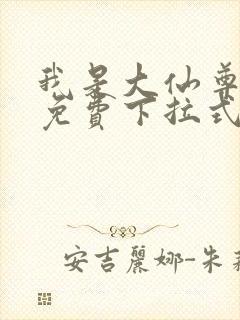 我是大仙尊
免费下拉式
安吉丽娜-朱